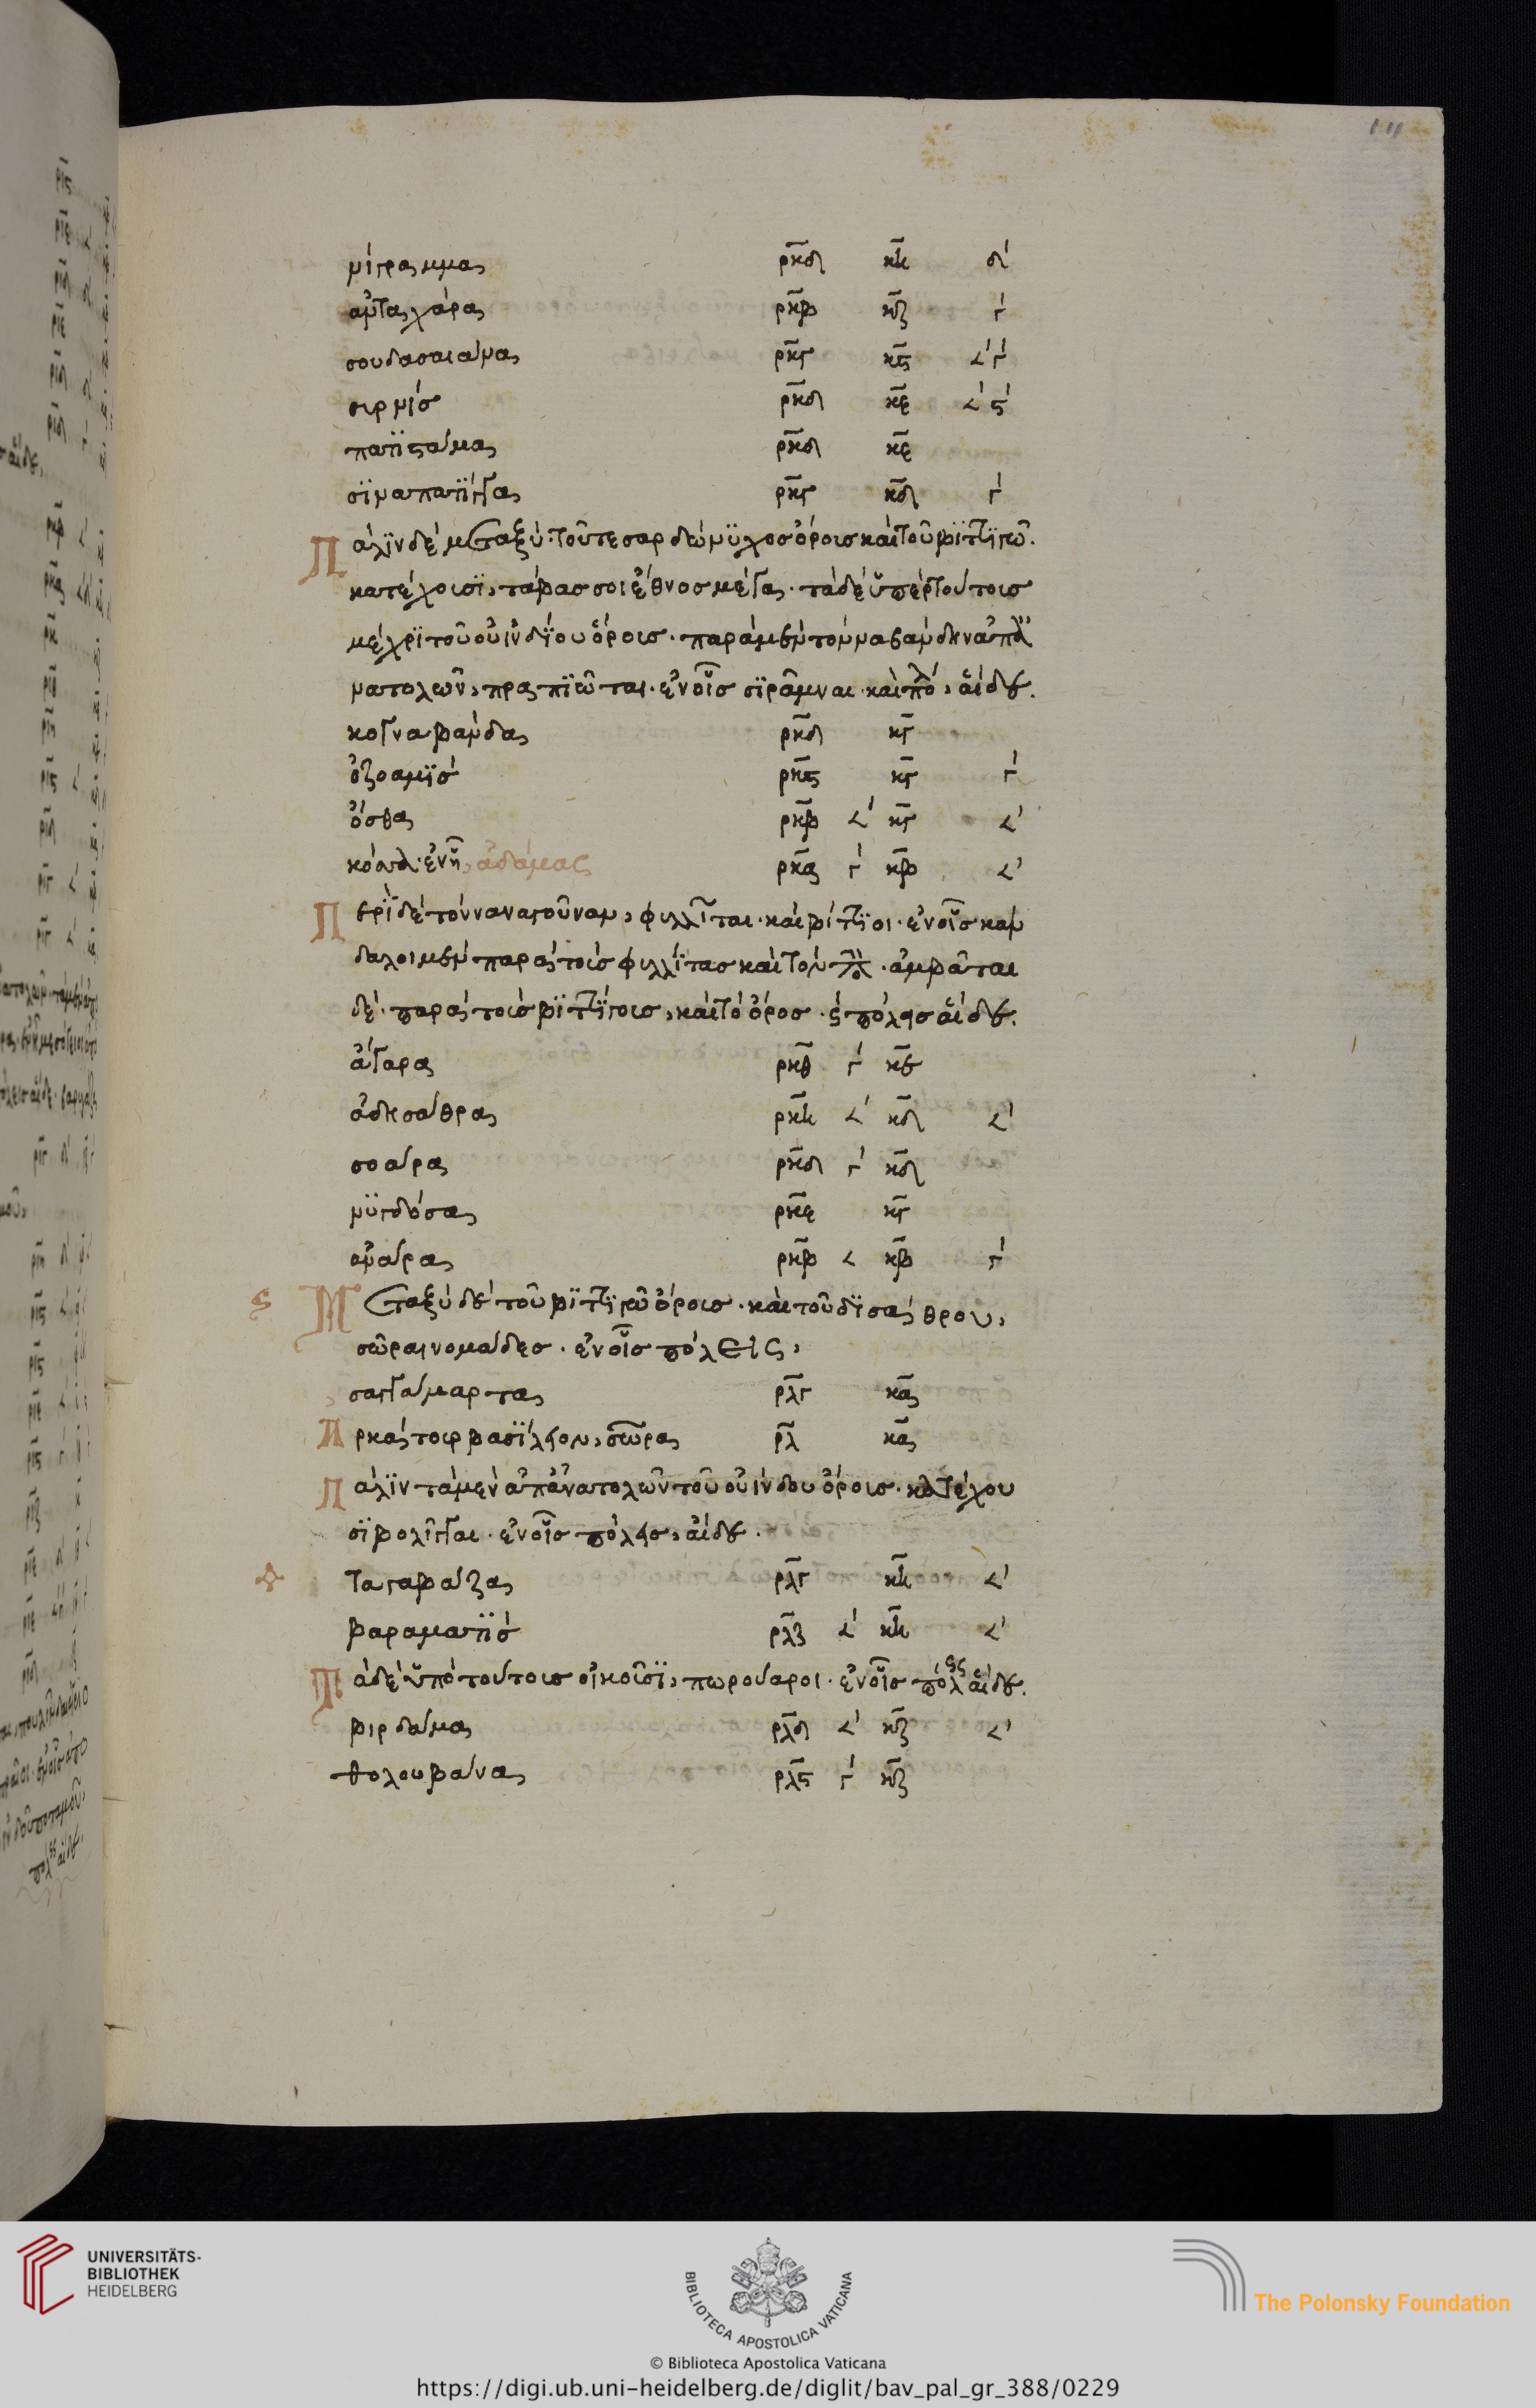 μίγραμμα ρκδ κη δ´
ἀντάχαρα ρκβ κζ γ´
σουδασαιάμα ρκγ κϛ 𐅵´γ´
σιρμίσ ρκδ κε 𐅵´ϛ´
πατϊσταίμα ρκδ κε
τϊματιτϊγα ρκγ κδ γ´
Πάλϊν δὲ μεταξὺ τοῦ τε σαρδωνϋχοσ ὄρουσ καὶ τοῦ βϊττϊγοῦ
κατέχουσϊ, τάβασσοι ἔθνοσ μέγα. τὰ δὲ ὑπὲρ τούτουσ
μέχρϊ τοῦ οὐινδΐου ὄρουσ. παρὰ μὲν τὸν ναβάνδην ἀπ᾽ ἀ
νατολῶν, πραπϊῶται. ἐν οἷσ σϊράμναι καὶ πόλ, αἵδε.
κογναβάνδα ρκδ κγ
ὀζοαμϊσ ρκϛ κγ γ´
ὄσθα ρκβ 𐅵´ κγ 𐅵´
κόσα ἐν ᾗ, ἀδάμας ρκα γ´ κβ 𐅵´
Περὶ δὲ τὸν ναναγοῦναν, φυλλῖται καὶ βίττϊοι. ἐν οἷσ καν
δαλοι μὲν παρὰ τοὺσ φυλλίτασ καὶ τὸν π. ἀμβᾶται
δὲ παρὰ τοὺσ βϊττΐγουσ, καὶ τὸ ὄροσ. ϛ πόλεισ αἵδε.
ἄγαρα ρκθ γ´ κε
ἀδησάθρα ρκη 𐅵´ κδ 𐅵´
σοάρα ρκδ γ´ κδ
νϋγδόσα ρκε κγ
ἀνάρα ρκβ 𐅵 κβ γ´
ϛ Μεταξὺ δὲ τοῦ βϊττϊγοῦ ὄρουσ καὶ τοῦ δϊσάθρου,
σῶραι νομάδεσ. ἐν οἷσ πόλεις,
σαγγάμαρτα ρλγ κα
Αρκάτου βασΐλειον, σῶρα ρλ κα
Πάλϊν τὰ μὲν ἀπ᾽ ἀνατολῶν τοῦ οὐίνδου ὄρουσ κατέχου
σϊ βολῖγγαι. ἐν οἷσ πόλεισ, αἵδε.
Ταγαβάζα ρλγ κη 𐅵´
βαραματϊσ ρλζ 𐅵´ κη 𐅵´
Τὰ δὲ ὑπὸ τούτουσ οἰκοῦσϊ, πωρούαροι. ἐν οἷσ πόλεις αἵδε.
βιρδάμα ρλδ 𐅵´ κζ 𐅵´
θολουβάνα ρλϛ γ´ κζ
UNIVERSITÄTS-
BIBLIOTHEK
HEIDELBERG
BIBLIOTECA APOSTOLICA VATICANA
The Polonsky Foundation
© Biblioteca Apostolica Vaticana
https://digi.ub.uni-heidelberg.de/diglit/bav_pal_gr_388/0229